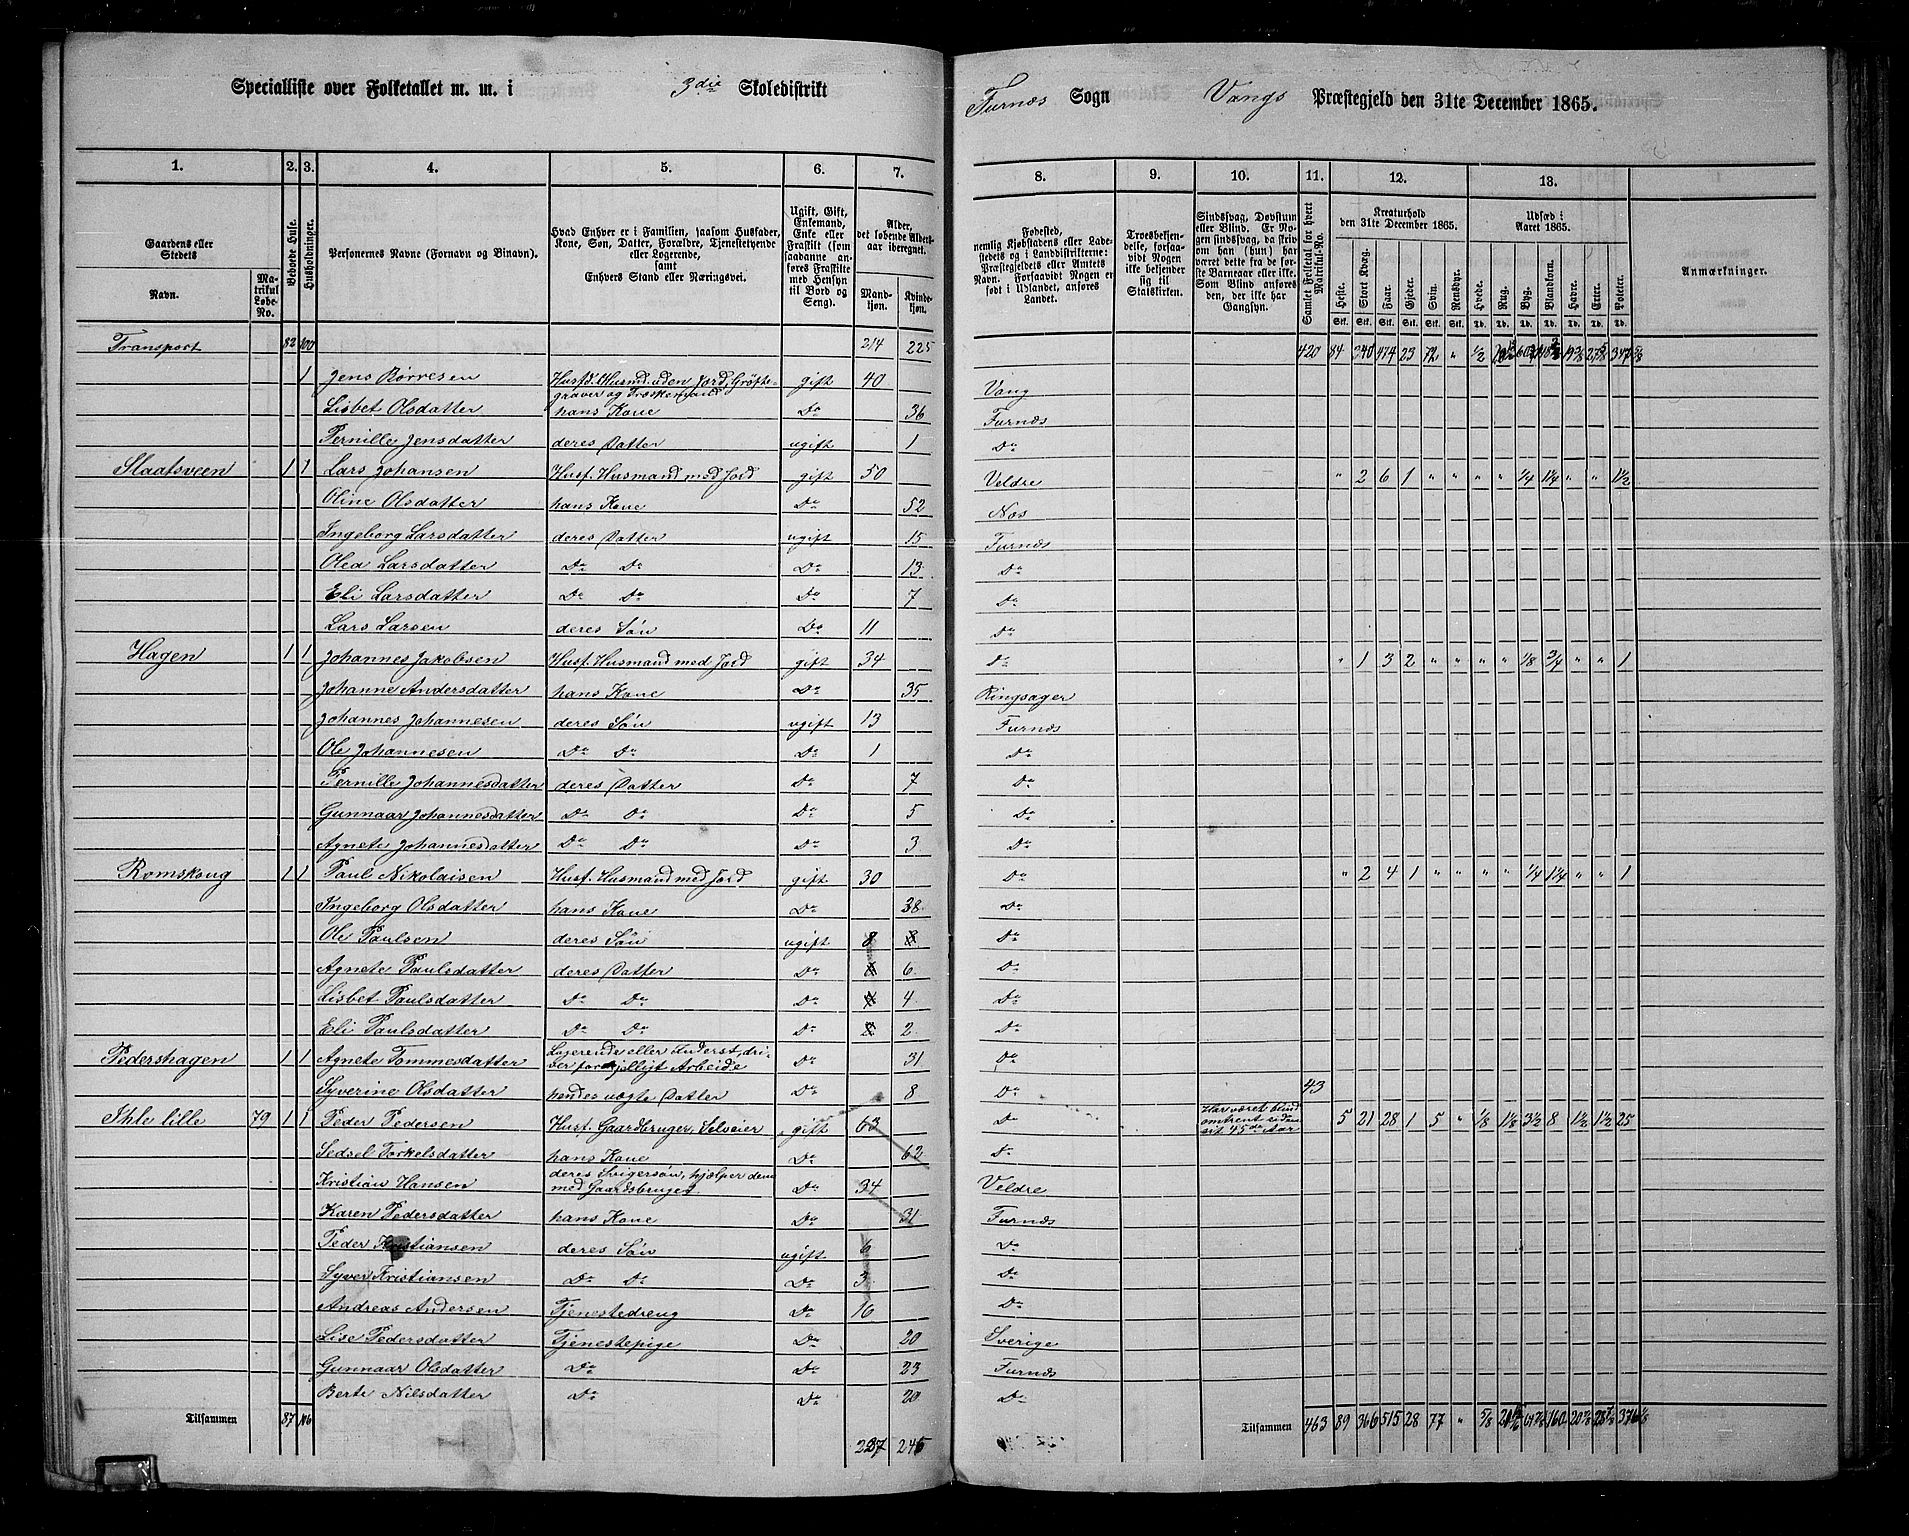 Specialliste over Folketallet m. m. i 3die Skoledistrikt Furnæs Sogn Vangs Præstegjeld den 31te December 1865.
1. 2. 3. 4. 5. 6. 7. 8. 9. 10. 11. 12. 13.
Gaardens eller Stedets Navn. Matrikul Løbe-No. Beboede Huse. Husholdninger. Personernes Navne (Fornavn og Binavn). Hvad Enhver er i Familien, saasom Husfader, Kone, Søn, Datter, Forældre, Tjenestetyende eller Logerende, samt Enhvers Stand eller Næringsvei. Ugift, Gift, Enkemand, Enke eller Fraskilt (som saadanne anføres Fraskilte med Hensyn til Bord og Seng). Alder, det løbende Aldersaar iberegnet. Mandkjøn. Kvindekjøn.
Fødested, nemlig Kjøbstadens eller Ladestedets og i Landdistrikterne: Præstegjeldets eller Amtets Navn. Forsaavidt Nogen er født i Udlandet, anføres Landet. Troesbekjendelse, forsaavidt Nogen ikke bekjender sig til Statskirken. Sindssvag, Døvstum eller Blind. Er Nogen sindssvag, da skrives om han (hun) har været dette fra de første Barneaar eller ikke. Som Blind anføres den, der ikke har Gangsyn. Samlet Folketal for hvert Matrikul-No. Kreaturhold den 31te December 1865. Heste. Stort Kvæg. Faar. Gjeder. Svin. Rensdyr. Stk. Stk. Stk. Stk. Stk. Stk. Udsæd i Aaret 1865. Hvede. Rug. Byg. Blandkorn. Havre. Erter. Poteter. Td. Td. Td. Td. Td. Td. Td. Anmærkninger.
Transport 82 100 214 225 420 84 340 474 23 72 " 1/2
1 Jens Børresen Husfd. Husmd. uden Jord, Grøftegraver og Træskemand gift 40 Vang
Lisbet Olsdatter hans Kone Do 36 Furnæs
Pernille Jensdatter deres Datter ugift 1 Do
Slaatsveen 1 1 Lars Johansen Husf. Husmand med Jord gift 50 Veldre " 2 6 1 " " " " 1/4 1 1/4 " " 1 1/2
Oline Olsdatter hans Kone Do 52 Næs
Ingeborg Larsdatter deres Datter ugift 15 Furnæs
Olea Larsdatter Do Do Do 13 Do
Eli Larsdatter Do Do Do 7 Do
Lars Larsen deres Søn Do 11 Do
Hagen 1 1 Johannes Jakobsen Husf. Husmand med Jord gift 34 Do " 1 3 2 " " " " 1/8 3/4 " " 1
Johanne Andersdatter hans Kone Do 35 Ringsager
Johannes Johannesen deres Søn ugift 13 Furnæs
Ole Johannesen Do Do Do 1 Do
Pernille Johannesdatter deres Datter Do 7 Do
Gunnaar Johannesdatter Do Do Do 5 Do
Agnete Johannesdatter Do Do Do 3 Do
Romskoug 1 1 Paul Nikolaisen Husf. Husmand med Jord gift 30 Do " 2 4 1 " " " " 1/4 1 1/4 " " 1
Ingeborg Olsdatter hans Kone Do 38 Do
Ole Paulsen deres Søn ugift 8 Do
Agnete Paulsdatter deres Datter Do 6 Do
Lisbet Paulsdatter Do Do Do 4 Do
Eli Paulsdatter Do Do Do 2 Do
Pedershagen 1 1 Agnete Tommesdatter Logerende eller Inderst, driver forskjelligt Arbeide Do 31 Do
Syverine Olsdatter hendes uægte Datter Do 8 Do 43
Ihle lille 79 1 1 Peder Pedersen Husf. Gaardbruger, Selveier gift 63 Do Har været blind omtrent siden sit 45de Aar 5 21 28 1 5 " 1/8 1 1/8 3 1/2 8 1 1/2 1 1/2 25
Sedsel Torkelsdatter hans Kone Do 62 Do
Kristian Hansen deres Svigersøn, hjælper dem med Gaardsbruget Do 34 Veldre
Karen Pedersdatter hans Kone Do 31 Furnæs
Peder Kristiansen deres Søn ugift 6 Do
Syver Kristiansen Do Do Do 3 Do
Andreas Andersen Tjenestedreng Do 16 Do
Lise Pedersdatter Tjenestepige Do 20 Sverige
Gunnaar Olsdatter Do Do 23 Furnæs
Berte Nilsdatter Do Do 20 Do
Tilsammen 87 106 227 245 Tilsammen 463 89 366 515 28 77 " 5/8